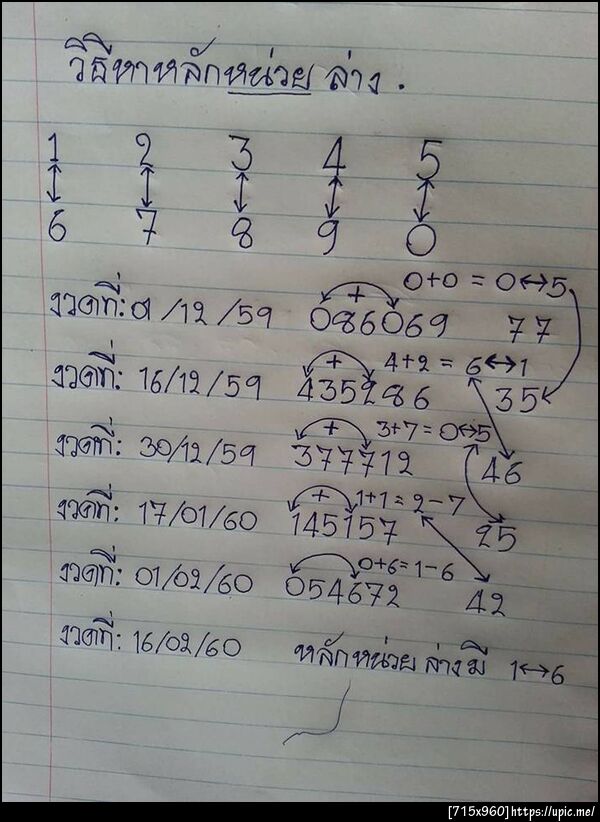 วิธีหาหลักหน่วย ล่าง .
1 2 3 4 5
6 7 8 9 0
0+0 = 0↔5
งวดที่: 01/12/59 086069 77
4+2 = 6↔1
งวดที่: 16/12/59 435286 35
3+7=0↔5
งวดที่: 30/12/59 377712 46
1+1=2-7
งวดที่: 17/01/60 145157 25
0+6=1-6
งวดที่: 01/02/60 054672 42
งวดที่: 16/02/60 หลักหน่วย ล่างมี 1↔6
[715x960]https://upic.me/